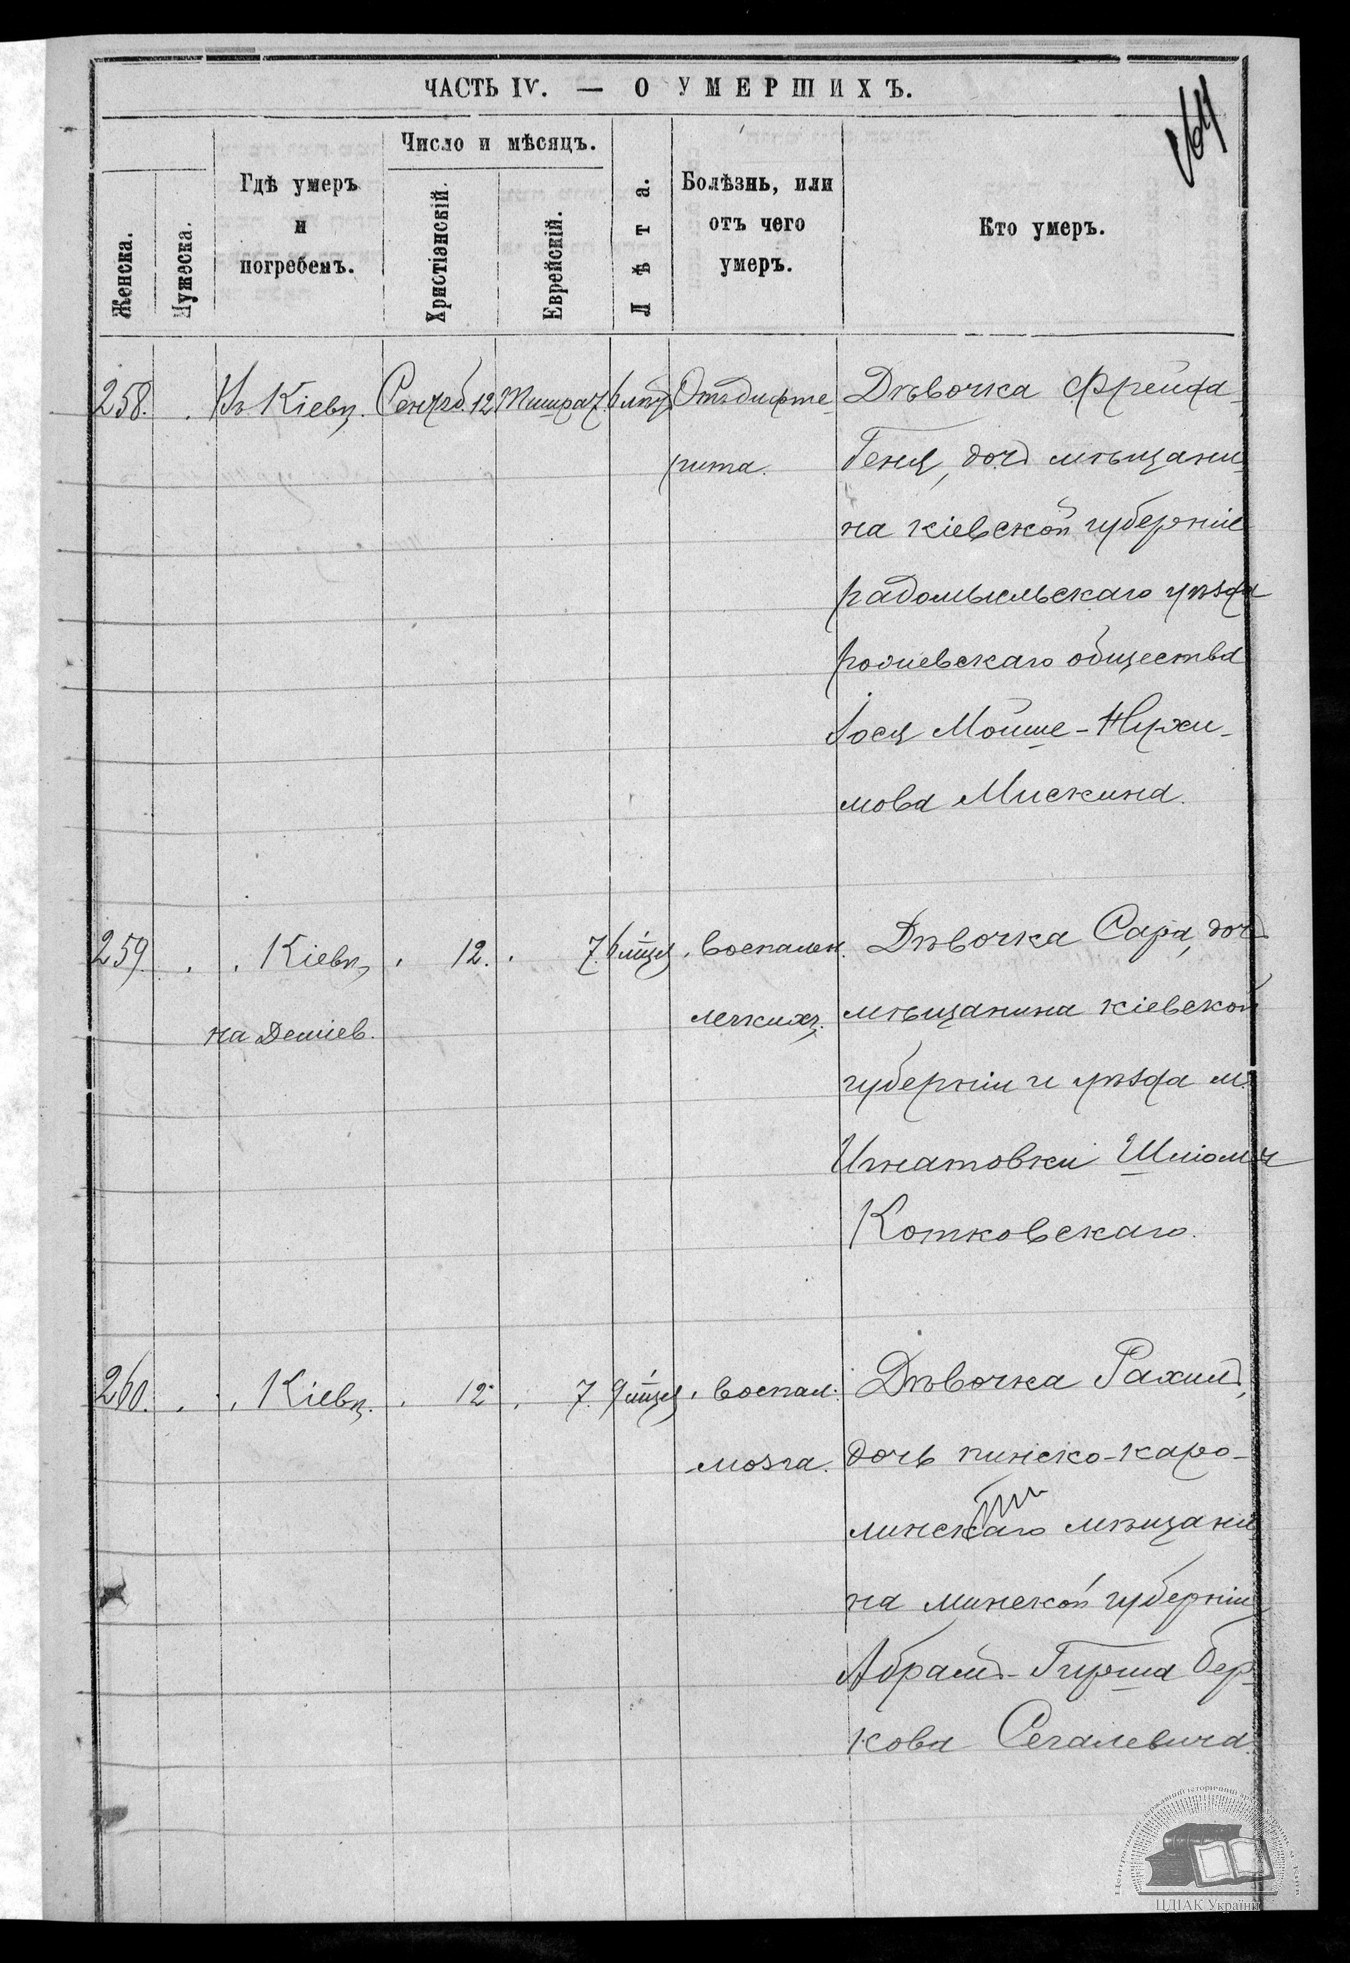 ЧАСТЬ IV. — О УМЕРШИХЪ.
164
Женска.
Мужеска.
Гдѣ умеръ
и
погребенъ.
Число и мѣсяцъ.
Христіанскій.
Еврейскій.
Лѣта.
Болѣзнь, или
отъ чего
умеръ.
Кто умеръ.
258. Въ Кіевѣ. Сентяб. 12 Тишра 7. 6 лѣтъ Отъ дифте
рита.
Дѣвочка Фрейда-
Геня, дочь мѣщани-
на кіевской губерніи
радомысльскаго уѣзда
общества
Іося Мойше-Нухи-
мова Мискина.
259. Кіевѣ, 12. 7. 6 мѣся. Воспален.
на Деміев.
легкихъ.
Дѣвочка Сара, дочь
мѣщанина кіевской
губерніи и уѣзда м.
Игнатовки Шліомы
Котковскаго.
260. Кіевѣ. 12. 7. 9 мѣся. воспал.
мозга.
Дѣвочка Рахиль,
дочь пинско-каро-
линскаго мѣщани-
на минской губерніи
Абрамъ-Гирша Бер-
кова Сегалевича.
ЦДІАК України